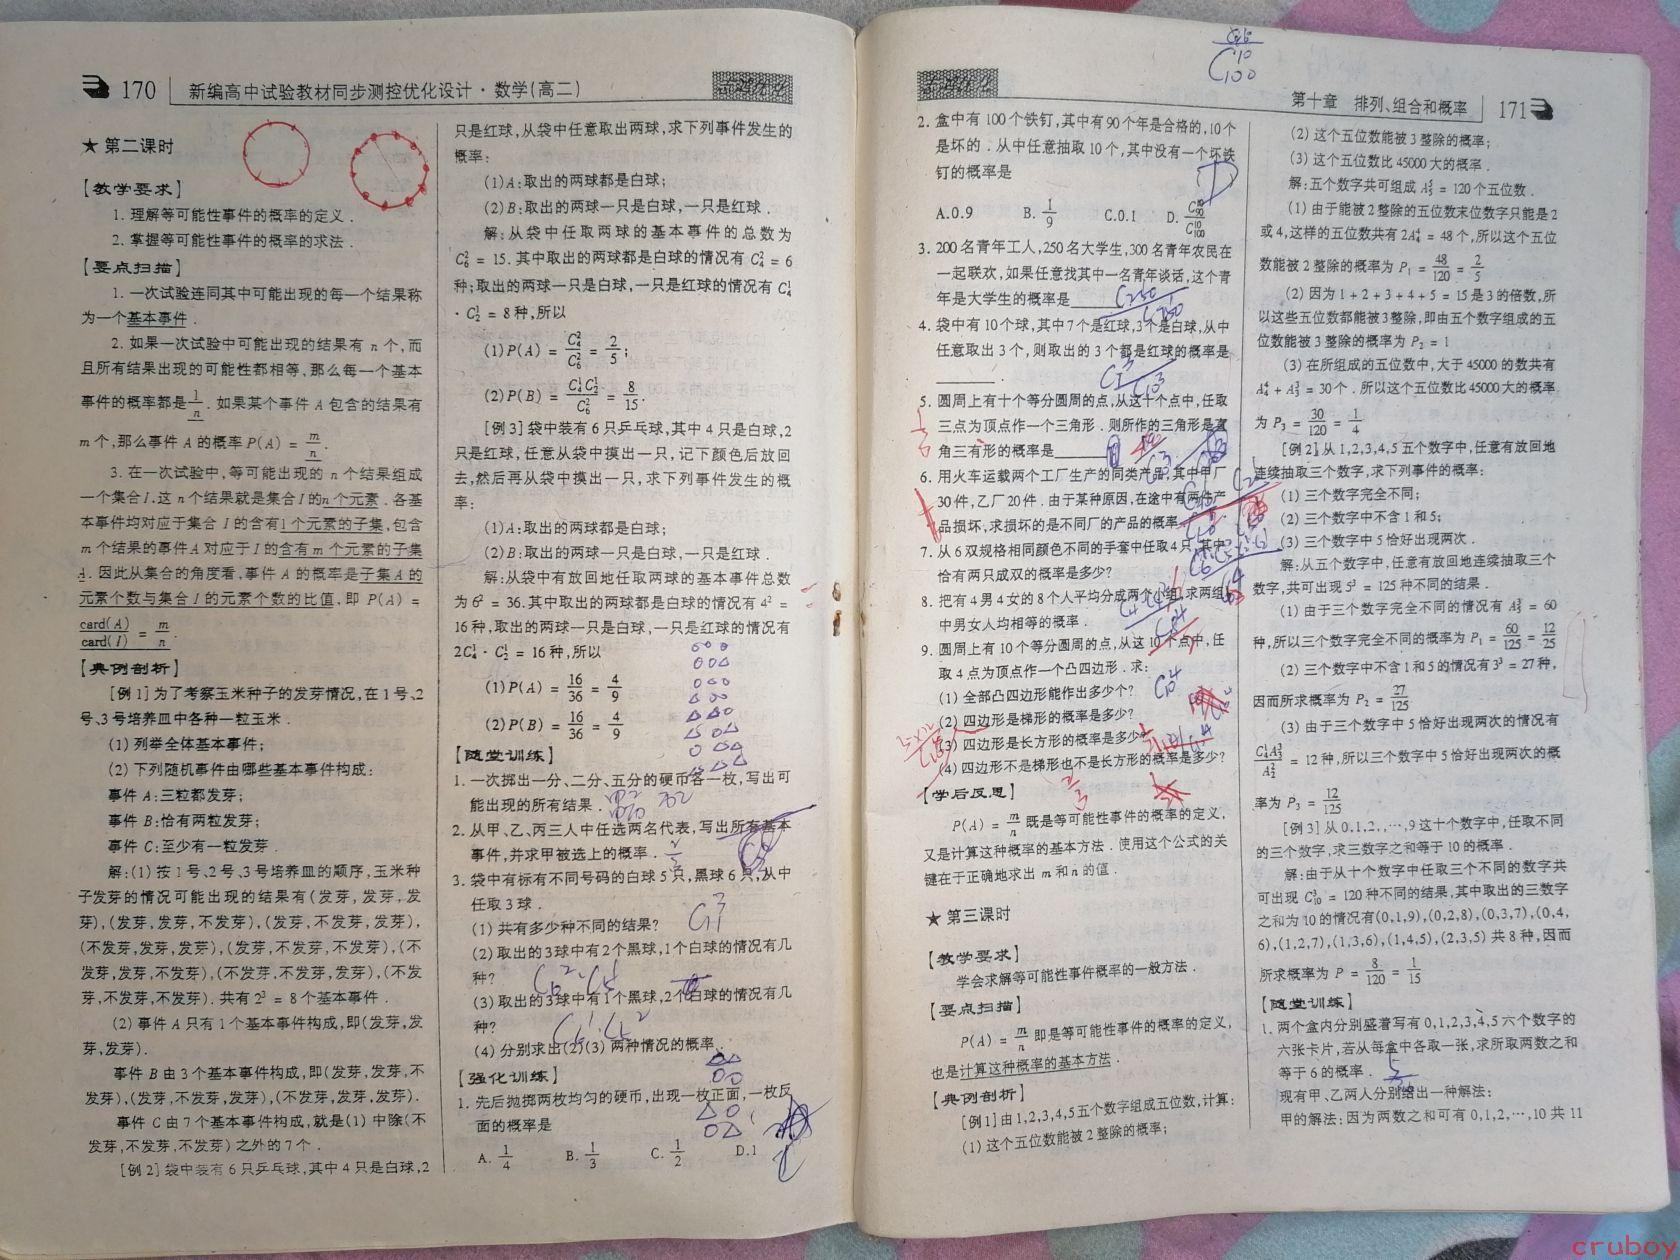 170 新编高中试验教材同步测控优化设计·数学(高二)
★ 第二课时
【教学要求】
1. 理解等可能性事件的概率的定义.
2. 掌握等可能性事件的概率的求法.
【要点扫描】
1. 一次试验连同其中可能出现的每一个结果称
为一个基本事件.
2. 如果一次试验中可能出现的结果有 n 个,而
且所有结果出现的可能性都相等,那么每一个基本
事件的概率都是 1/n. 如果某个事件 A 包含的结果有
m 个,那么事件 A 的概率 P(A) = m/n.
3. 在一次试验中,等可能出现的 n 个结果组成
一个集合 I.这 n 个结果就是集合 I 的n 个元素. 各基
本事件均对应于集合 I 的含有1 个元素的子集,包含
m 个结果的事件 A 对应于 I 的含有 m 个元素的子集
A. 因此从集合的角度看,事件 A 的概率是子集 A 的
元素个数与集合 I 的元素个数的比值,即 P(A) =
card(A)/card(I) = m/n.
【典例剖析】
[例 1]为了考察玉米种子的发芽情况,在 1 号、2
号、3 号培养皿中各种一粒玉米.
(1) 列举全体基本事件;
(2) 下列随机事件由哪些基本事件构成:
事件 A:三粒都发芽;
事件 B:恰有两粒发芽;
事件 C:至少有一粒发芽.
解:(1) 按 1 号、2 号、3 号培养皿的顺序,玉米种
子发芽的情况可能出现的结果有(发芽,发芽,发
芽),(发芽,发芽,不发芽),(发芽,不发芽,发芽),
(不发芽,发芽,发芽),(发芽,不发芽,不发芽),(不
发芽,发芽,不发芽),(不发芽,不发芽,发芽),(不发
芽,不发芽,不发芽). 共有 2³ = 8 个基本事件.
(2) 事件 A 只有 1 个基本事件构成,即(发芽,发
芽,发芽).
事件 B 由 3 个基本事件构成,即(发芽,发芽,不
发芽),(发芽,不发芽,发芽),(不发芽,发芽,发芽).
事件 C 由 7 个基本事件构成,就是(1) 中除(不
发芽,不发芽,不发芽) 之外的 7 个.
[例 2]袋中装有 6 只乒乓球,其中 4 只是白球,2
只是红球,从袋中任意取出两球,求下列事件发生的
概率:
(1)A:取出的两球都是白球;
(2)B:取出的两球一只是白球,一只是红球.
解:从袋中任取两球的基本事件的总数为
C₆² = 15. 其中取出的两球都是白球的情况有 C₄² = 6
种;取出的两球一只是白球,一只是红球的情况有 C₄¹
· C₂¹ = 8 种,所以
(1)P(A) = C₄²/C₆² = 2/5;
(2)P(B) = C₄¹C₂¹/C₆² = 8/15.
[例 3]袋中装有 6 只乒乓球,其中 4 只是白球,2
只是红球,任意从袋中摸出一只,记下颜色后放回
去,然后再从袋中摸出一只,求下列事件发生的概
率:
(1)A:取出的两球都是白球;
(2)B:取出的两球一只是白球,一只是红球.
解:从袋中有放回地任取两球的基本事件总数
为 6² = 36.其中取出的两球都是白球的情况有 4² =
16 种,取出的两球一只是白球,一只是红球的情况有
2C₄¹ · C₂¹ = 16 种,所以
(1)P(A) = 16/36 = 4/9
(2)P(B) = 16/36 = 4/9
【随堂训练】
1. 一次掷出一分、二分、五分的硬币各一枚,写出可
能出现的所有结果.
2. 从甲、乙、丙三人中任选两名代表,写出所有基本
事件,并求甲被选上的概率. 2/3
3. 袋中有标有不同号码的白球 5 只,黑球 6 只,从中
任取 3 球.
(1) 共有多少种不同的结果?
(2) 取出的3球中有2个黑球,1个白球的情况有几
种? C₆²·C₅¹
(3) 取出的3球中有1个黑球,2个白球的情况有几
种? C₆¹·C₅²
(4) 分别求出(2)(3) 两种情况的概率.
【强化训练】
1. 先后抛掷两枚均匀的硬币,出现一枚正面,一枚反
面的概率是
A. 1/4 B. 1/3 C. 1/2 D.1
第十章 排列、组合和概率 171
2. 盒中有 100 个铁钉,其中有 90 个年是合格的,10 个
是坏的. 从中任意抽取 10 个,其中没有一个坏铁
钉的概率是 D
A.0.9 B. 1/9 C.0.1 D. C₉₀¹⁰/C₁₀₀¹⁰
3. 200 名青年工人,250 名大学生,300 名青年农民在
一起联欢,如果任意找其中一名青年谈话,这个青
年是大学生的概率是
4. 袋中有 10 个球,其中 7 个是红球,3 个是白球,从中
任意取出 3 个,则取出的 3 个都是红球的概率是
C₇³/C₁₀³
5. 圆周上有十个等分圆周的点,从这十个点中,任取
三点为顶点作一个三角形. 则所作的三角形是直
角三有形的概率是
6. 用火车运载两个工厂生产的同类产品,其中甲厂
30 件,乙厂 20 件. 由于某种原因,在途中有两件产
品损坏,求损坏的是不同厂的产品的概率
7. 从 6 双规格相同颜色不同的手套中任取4 只,其中
恰有两只成双的概率是多少?
8. 把有 4 男 4 女的 8 个人平均分成两个小组,求两组
中男女人均相等的概率.
9. 圆周上有 10 个等分圆周的点,从这 10 个点中,任
取 4 点为顶点作一个凸四边形. 求:
(1) 全部凸四边形能作出多少个? C₁₀⁴
(2) 四边形是梯形的概率是多少?
(3) 四边形是长方形的概率是多少?
(4) 四边形不是梯形也不是长方形的概率是多少?
【学后反思】
P(A) = m/n 既是等可能性事件的概率的定义,
又是计算这种概率的基本方法. 使用这个公式的关
键在于正确地求出 m 和 n 的值.
★ 第三课时
【教学要求】
学会求解等可能性事件概率的一般方法.
【要点扫描】
P(A) = m/n 即是等可能性事件的概率的定义,
也是计算这种概率的基本方法.
【典例剖析】
[例 1]由 1,2,3,4,5 五个数字组成五位数,计算:
(1) 这个五位数能被 2 整除的概率;
(2) 这个五位数能被 3 整除的概率;
(3) 这个五位数比 45000 大的概率.
解:五个数字共可组成 A₅⁵ = 120 个五位数.
(1) 由于能被 2 整除的五位数末位数字只能是 2
或 4,这样的五位数共有 2A₄⁴ = 48 个,所以这个五位
数能被 2 整除的概率为 P₁ = 48/120 = 2/5
(2) 因为 1 + 2 + 3 + 4 + 5 = 15 是 3 的倍数,所
以这些五位数都能被3整除,即由五个数字组成的五
位数能被 3 整除的概率为 P₂ = 1
(3) 在所组成的五位数中,大于 45000 的数共有
A₄⁴ + A₃³ = 30 个. 所以这个五位数比 45000 大的概率
为 P₃ = 30/120 = 1/4
[例 2]从 1,2,3,4,5 五个数字中,任意有放回地
连续抽取三个数字,求下列事件的概率:
(1) 三个数字完全不同;
(2) 三个数字中不含 1 和 5;
(3) 三个数字中 5 恰好出现两次.
解:从五个数字中,任意有放回地连续抽取三个
数字,共可出现 5³ = 125 种不同的结果.
(1) 由于三个数字完全不同的情况有 A₅³ = 60
种,所以三个数字完全不同的概率为 P₁ = 60/125 = 12/25
(2) 三个数字中不含 1 和 5 的情况有 3³ = 27 种,
因而所求概率为 P₂ = 27/125
(3) 由于三个数字中 5 恰好出现两次的情况有
C₄¹A₃³/A₂² = 12 种,所以三个数字中 5 恰好出现两次的概
率为 P₃ = 12/125
[例 3]从 0,1,2,…,9 这十个数字中,任取不同
的三个数字,求三数字之和等于 10 的概率.
解:由于从十个数字中任取三个不同的数字共
可出现 C₁₀³ = 120 种不同的结果,其中取出的三数字
之和为 10 的情况有(0,1,9),(0,2,8),(0,3,7),(0,4,
6),(1,2,7),(1,3,6),(1,4,5),(2,3,5) 共 8 种,因而
所求概率为 P = 8/120 = 1/15
【随堂训练】
1. 两个盒内分别盛着写有 0,1,2,3,4,5 六个数字的
六张卡片,若从每盒中各取一张,求所取两数之和
等于 6 的概率. 5/36
现有甲、乙两人分别给出一种解法:
甲的解法:因为两数之和可有 0,1,2,…,10 共 11
cruboy